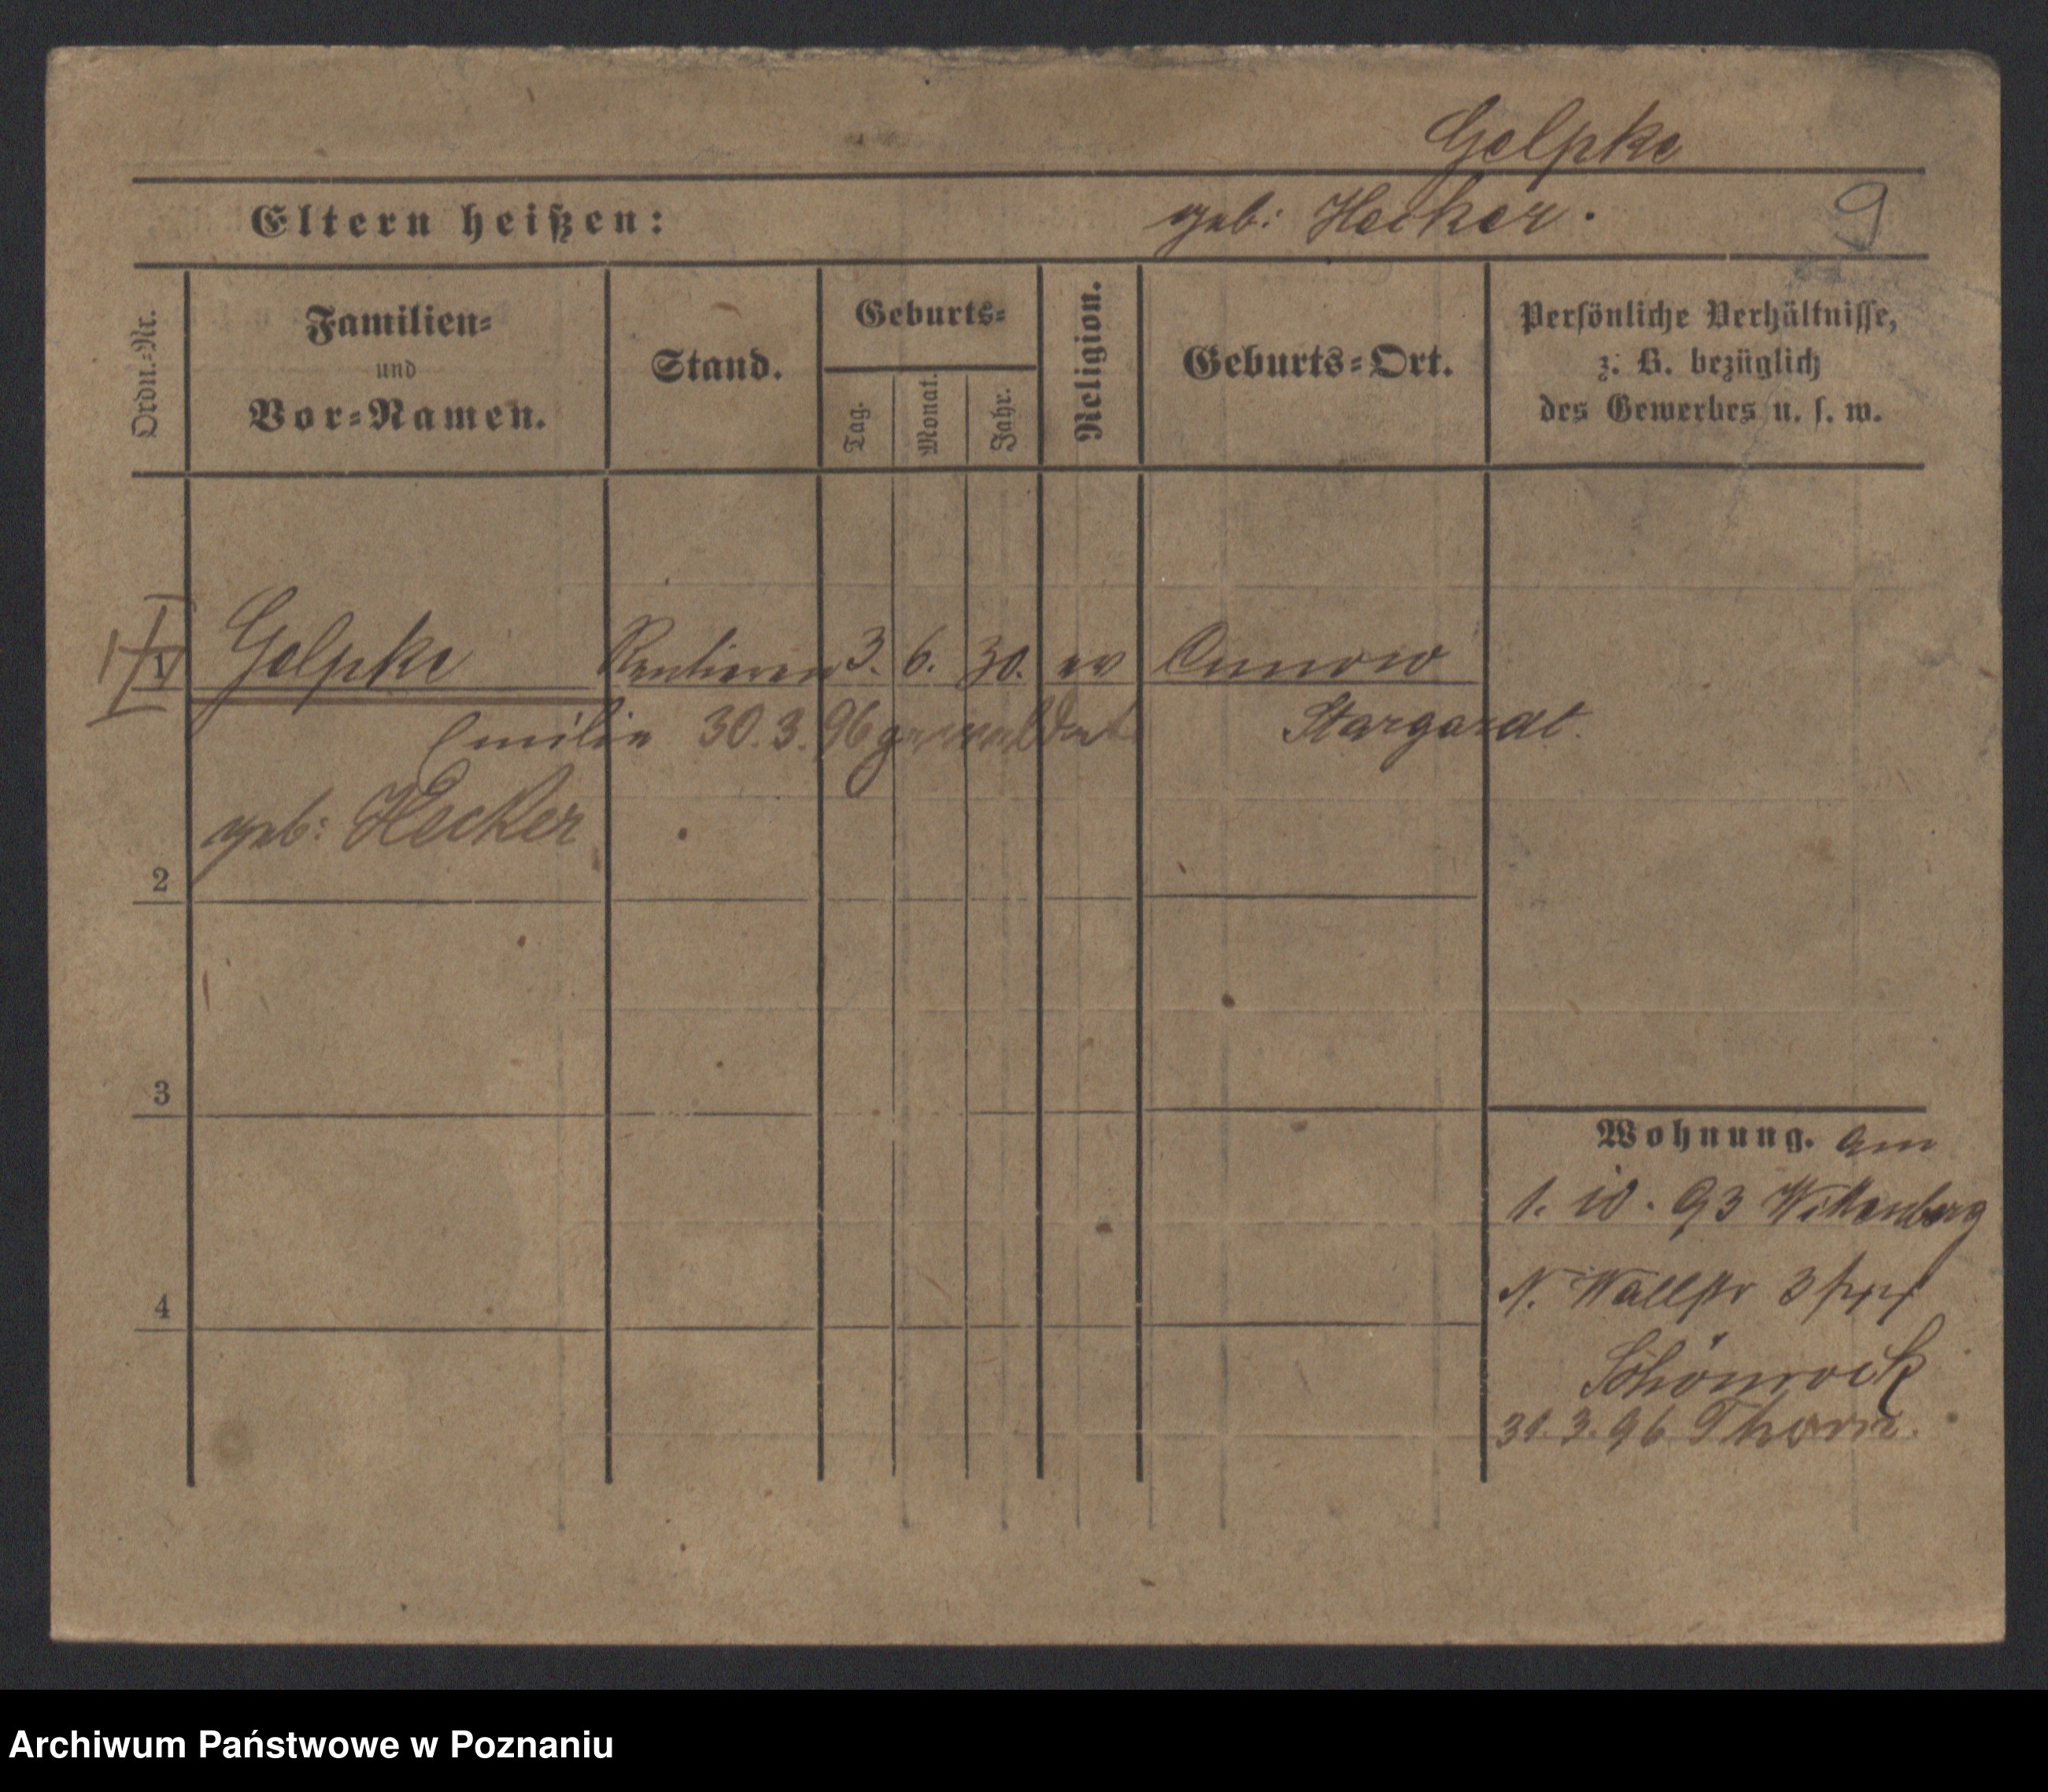 Gelpke
Eltern heißen: geb: Hecker. 9
Ordn.-Nr.
Familien-
und
Vor-Namen.
Stand.
Geburts-
Tag.
Monat.
Jahr.
Religion.
Geburts-Ort.
Persönliche Verhältnisse,
z. B. bezüglich
des Gewerbes u. s. w.
1 Gelpke Rentieren 3. 6. 30. ev Cunow
Emilie 30.3.96 gemeldet Stargardt.
geb: Hecker
2
3
Wohnung. am
1. 10. 93 Wittenberg
4
N. Wallstr 3
Schönrock
31.3.96 Thorn.
Archiwum Państwowe w Poznaniu